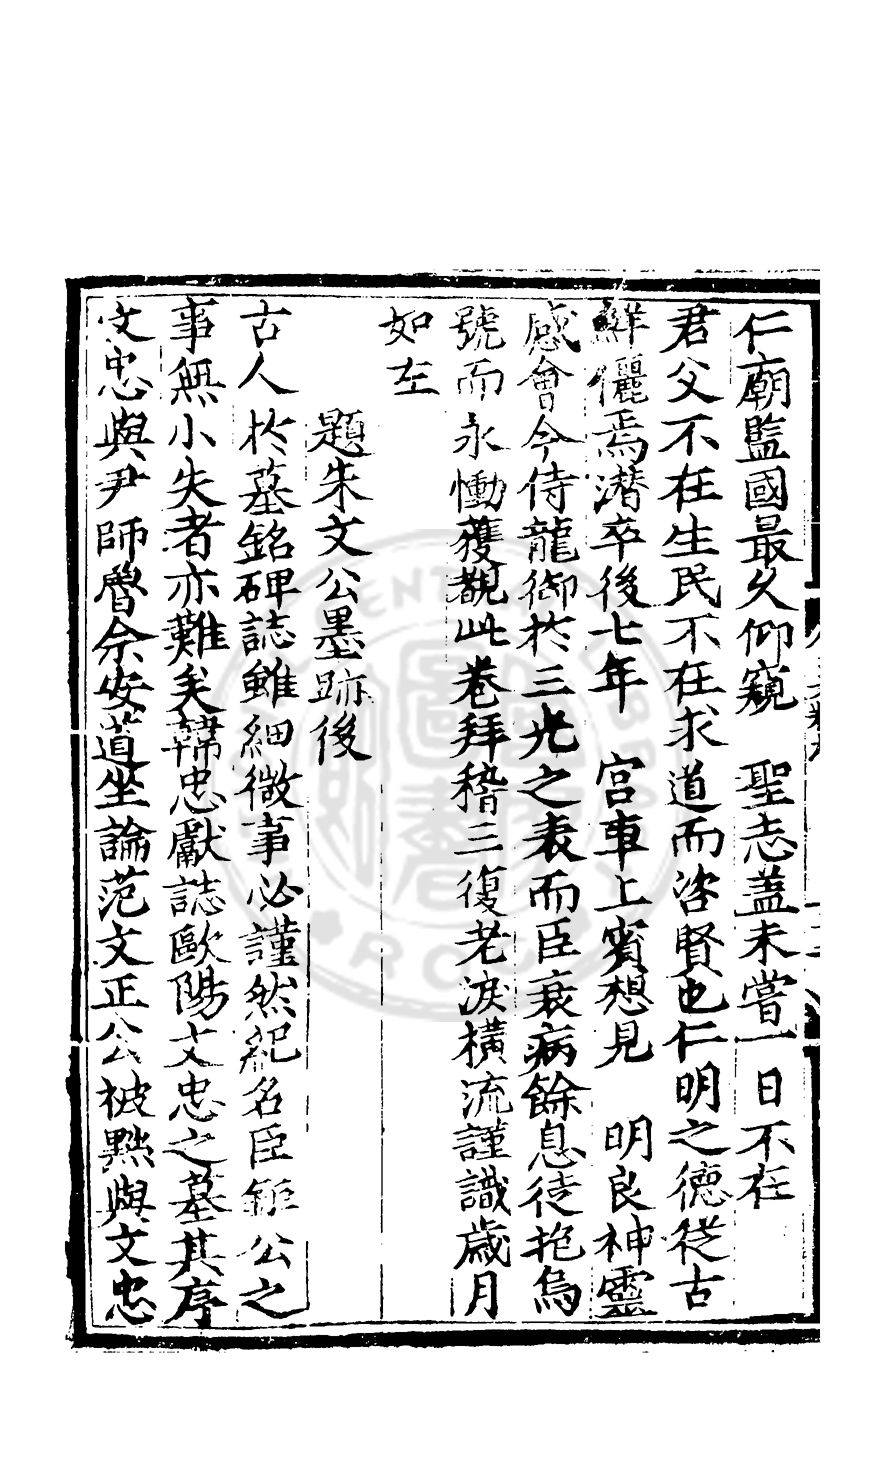 仁廟監國最久仰窺　聖志蓋未嘗一日不在
君父不在生民不在求道而咨賢也仁明之德從古
鮮儷焉潛卒後七年　宮車上賓想見　明良神靈
感會今侍龍御於三光之表而臣衰病餘息徒抱烏
號而永慟獲覩此卷拜稽三復老淚橫流謹識歲月
如左
題朱文公墨跡後
古人於墓銘碑誌雖細微事必謹然紀名臣鉅公之
事無小失者亦難矣韓忠獻誌歐陽文忠之墓其序
文忠與尹師魯余安道坐論范文正公被黜與文忠